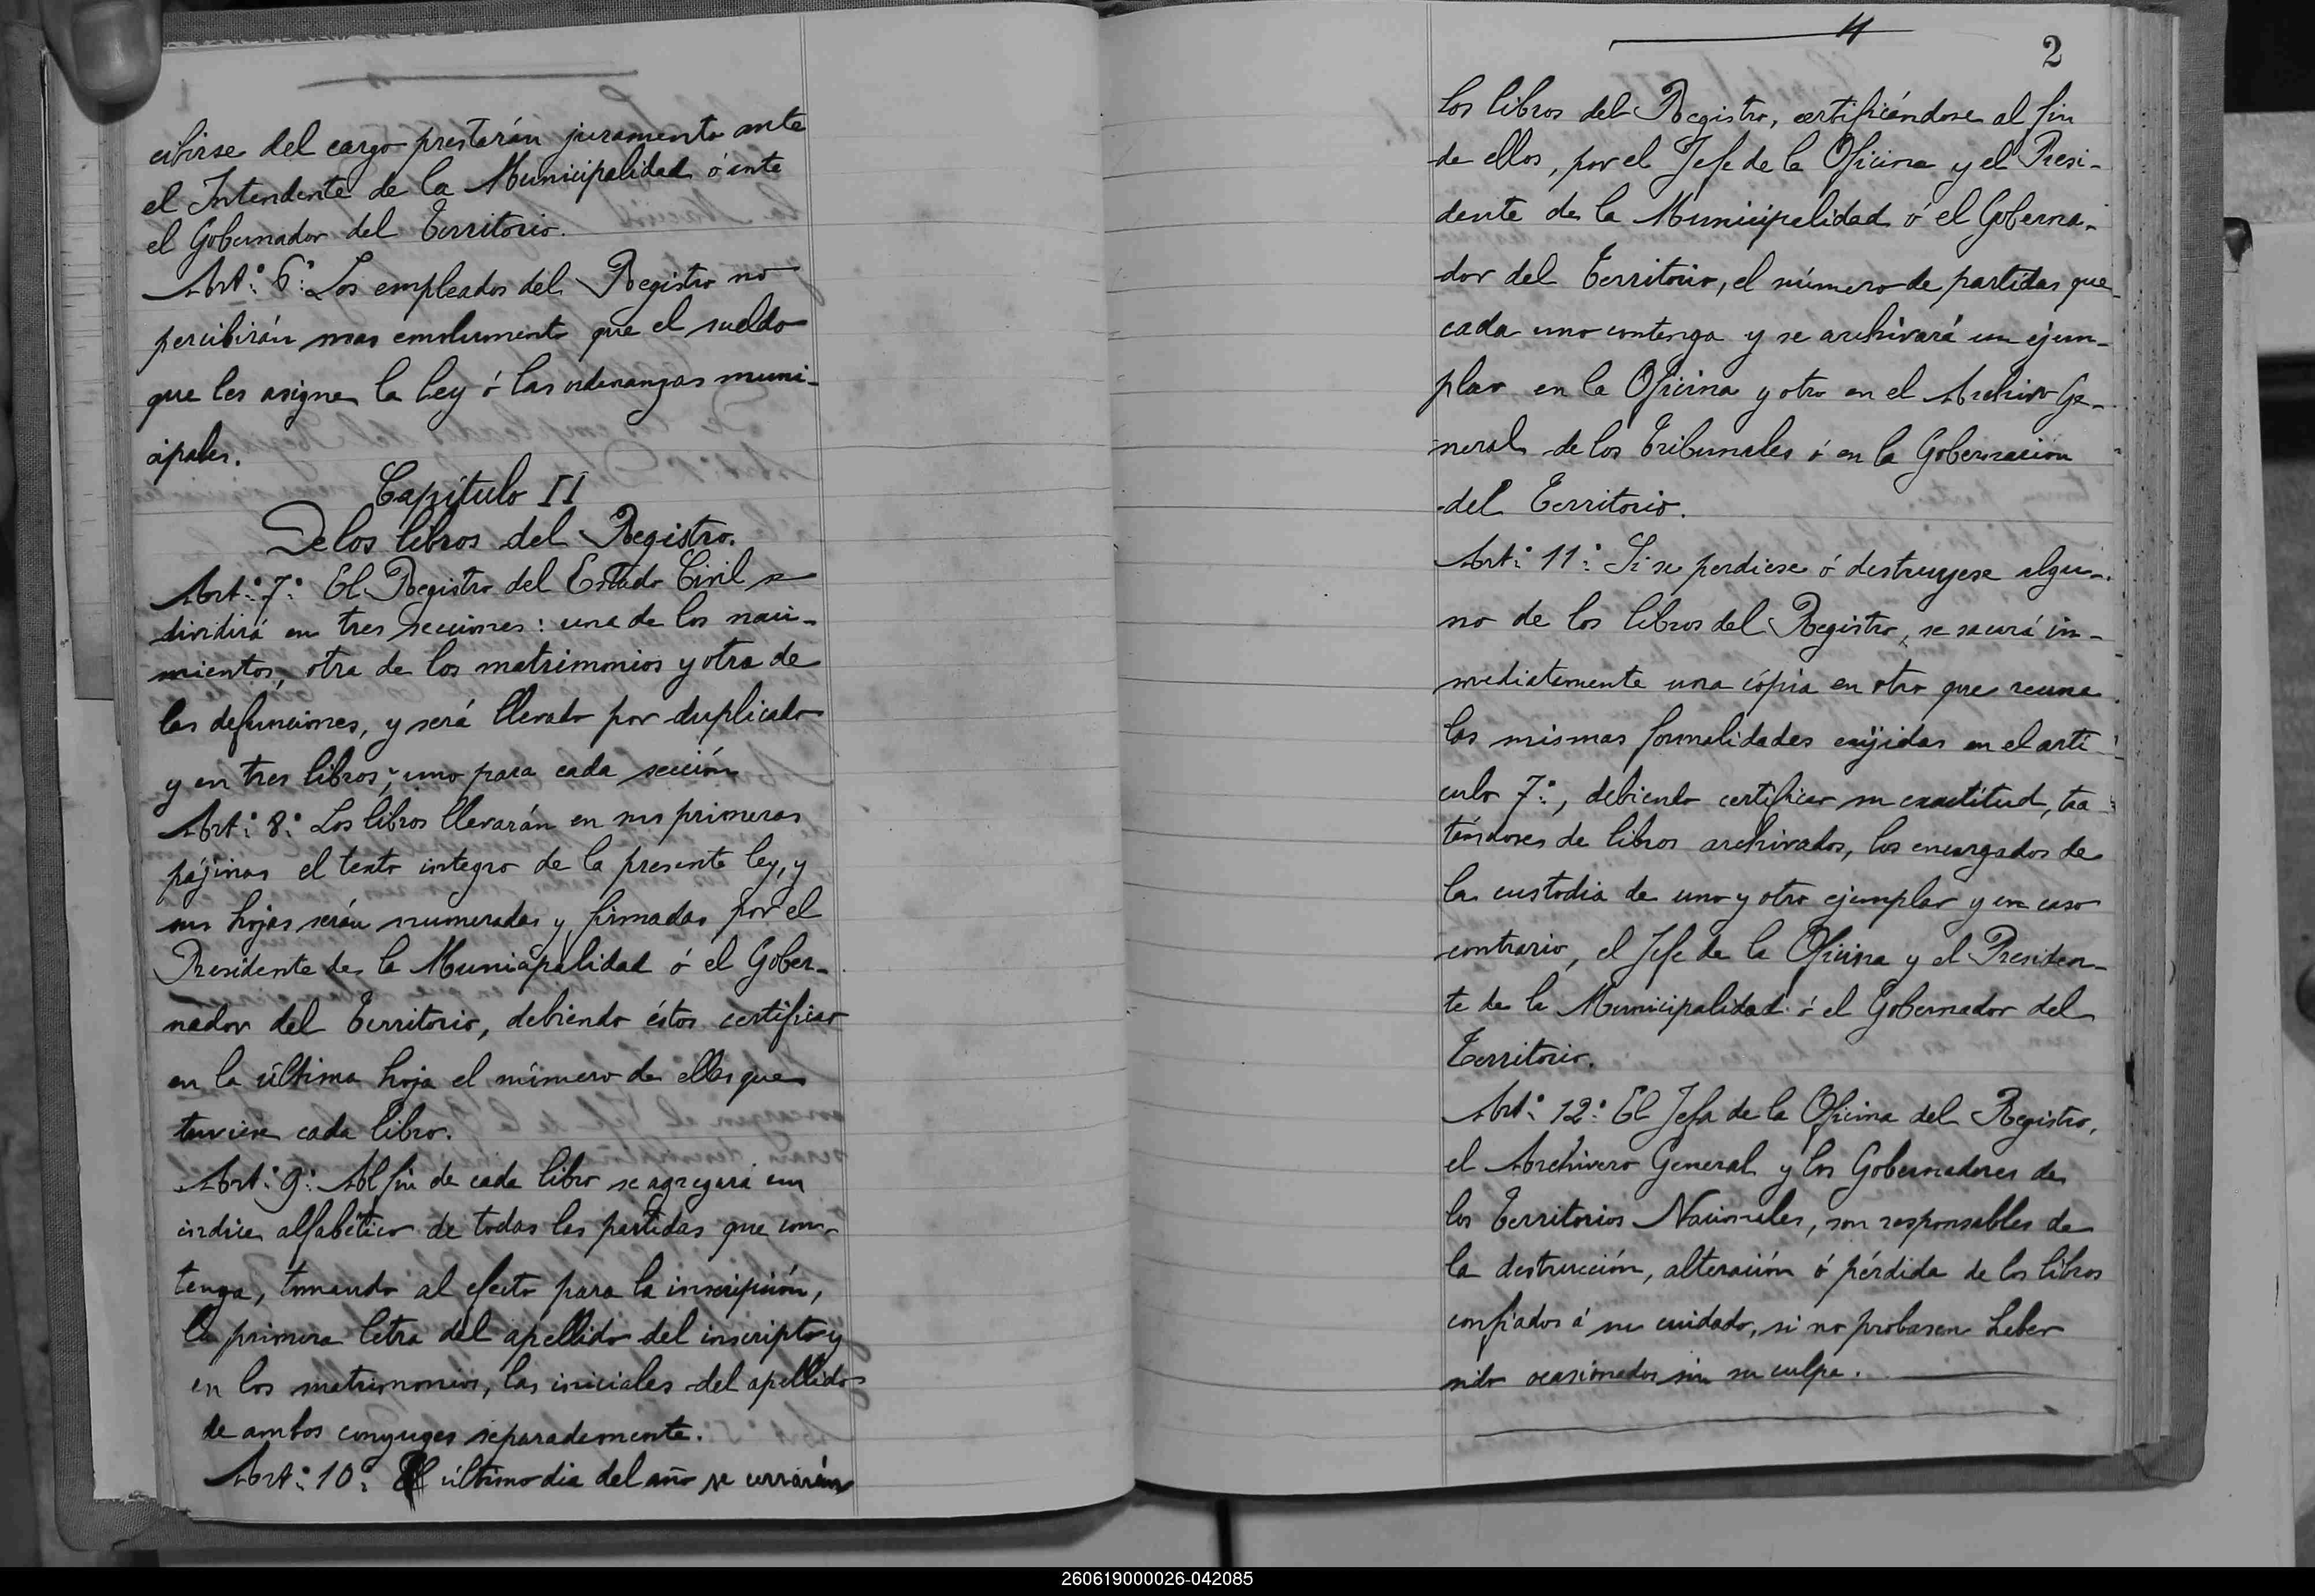 cibirse del cargo prestarán juramento ante
el Intendente de la Municipalidad ó ante
el Gobernador del Territorio.
Art.º 6.º Los empleados del Registro no
percibirán mas emolumento que el sueldo
que les asigne la Ley ó las ordenanzas muni-
cipales.
Capítulo II
De los libros del Registro.
Art.º 7.º El Registro del Estado Civil se
dividirá en tres secciones: una de los naci-
mientos, otra de los matrimonios y otra de
las defunciones, y será llevado por duplicado
y en tres libros; uno para cada sección
Art.º 8.º Los libros llevarán en sus primeras
pájinas el texto integro de la presente ley, y
sus hojas serán numeradas y firmadas por el
Presidente de la Municipalidad ó el Gober-
nador del Territorio, debiendo éstos certificar
en la última hoja el número de ellas que
tuviere cada libro.
Art.º 9.º Al fin de cada libro se agregará un
indice alfabético de todas las partidas que con-
tenga, tomando al efecto para la inscripción,
la primera letra del apellido del inscripto y
en los matrimonios, las iniciales del apellido
de ambos conyuges separadamente.
Art.º 10.º El último dia del año se cerrarán
4
2
los libros del Registro, certificándose al fin
de ellos, por el Jefe de la Oficina y el Presi-
dente de la Municipalidad ó el Goberna-
dor del Territorio, el número de partidas que
cada uno contenga y se archivará un ejem-
plar en la Oficina y otro en el Archivo Ge-
neral de los Tribunales ó en la Gobernación
del Territorio.
Art.º 11.º Si se perdiese ó destruyese algu-
no de los libros del Registro, se sacará in-
mediatamente una cópia en otro que reuna
las mismas formalidades exijidas en el arti-
culo 7.º, debiendo certificar su exactitud, tra-
tándoses de libros archivados, los encargados de
la custodia de uno y otro ejemplar y en caso
contrario, el Jefe de la Oficina y el Presiden-
te de la Municipalidad ó el Gobernador del
Territorio.
Art.º 12.º El Jefe de la Oficina del Registro,
el Archivero General y los Gobernadores de
los Territorios Nacionales, son responsables de
la destrucción, alteración ó pérdida de los libros
confiados á su cuidado, si no probasen haber
sido ocasionados sin su culpa.
260619000026-042085